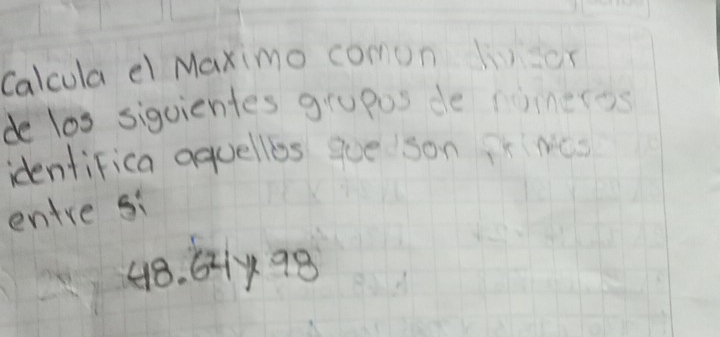 Calcula el Maximo comun divisor
de los siguientes grupos de números
identifica aquellos que son primos
entre si
48.64 y 98